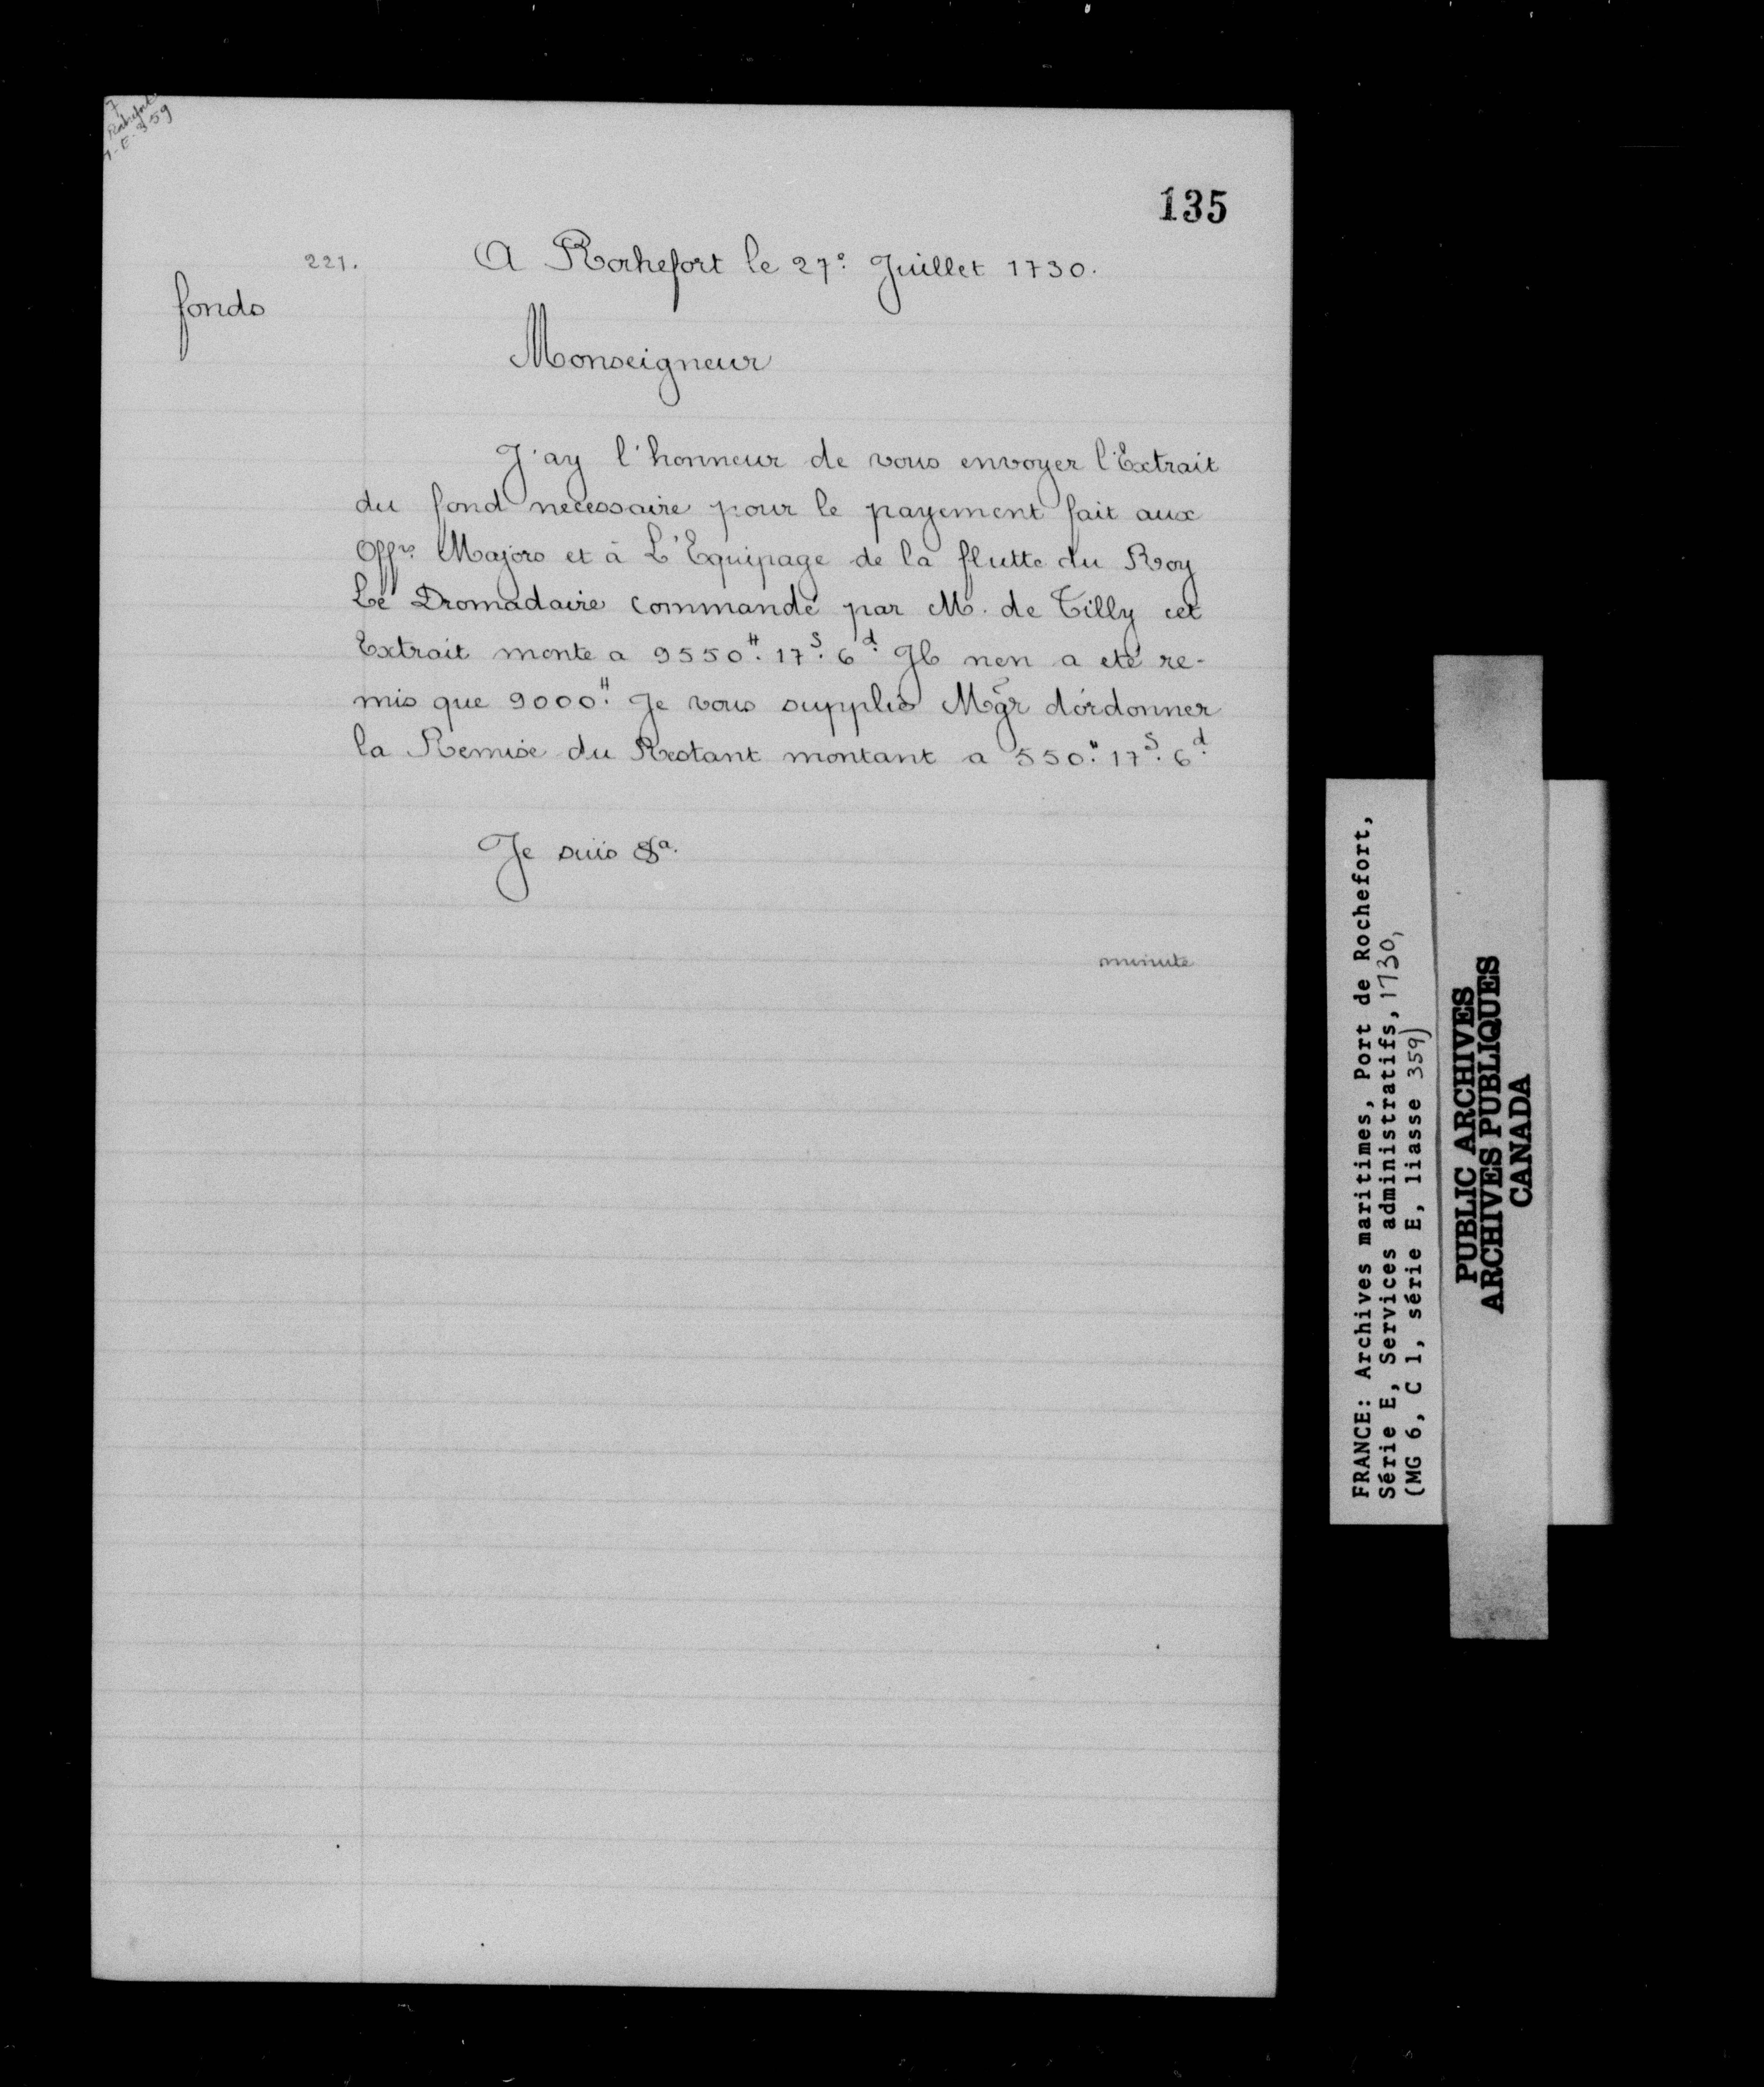 7
Rochefort
1-E-359
135
221. A Rochefort le 27e Juillet 1730.
fonds
Monseigneur
J'ay l'honneur de vous envoyer l'Extrait
du fond necessaire pour le payement fait aux
Offrs Majors et à L'Equipage de la flutte du Roy
Le Dromadaire commandé par M. de Tilly cet
Extrait monte a 9550tt. 17s. 6d. Jl nen a eté re-
mis que 9000tt. Je vous supplie Mgr d'ordonner
la Remise du Restant montant a 550tt. 17s. 6d.
Je suis &a.
minute
FRANCE: Archives maritimes, Port de Rochefort,
Série E, Services administratifs, 1730,
(MG 6, C 1, série E, liasse 359)
PUBLIC ARCHIVES
ARCHIVES PUBLIQUES
CANADA